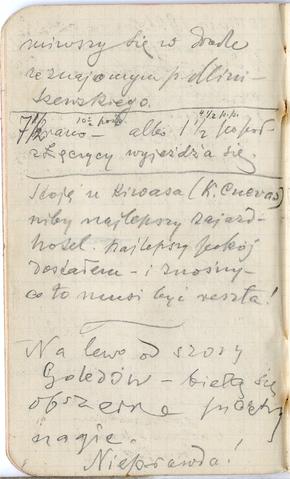 miwszy się w drodze
ze znajomym p.
szewskiego.
10½ 4½ p.p.
7½ rano – albo 1½ popoł
z Łęczycy wyjeżdża się.
Stoję u Kiwasa (K. Cuevas)
niby najlepszy zajazd-
hotel. Najlepszy pokój
dostałem – i znośny –
co to musi być reszta!
Na lewo od szosy
Goledów – bielą się
obszerne
nagie.
Nieprawda!